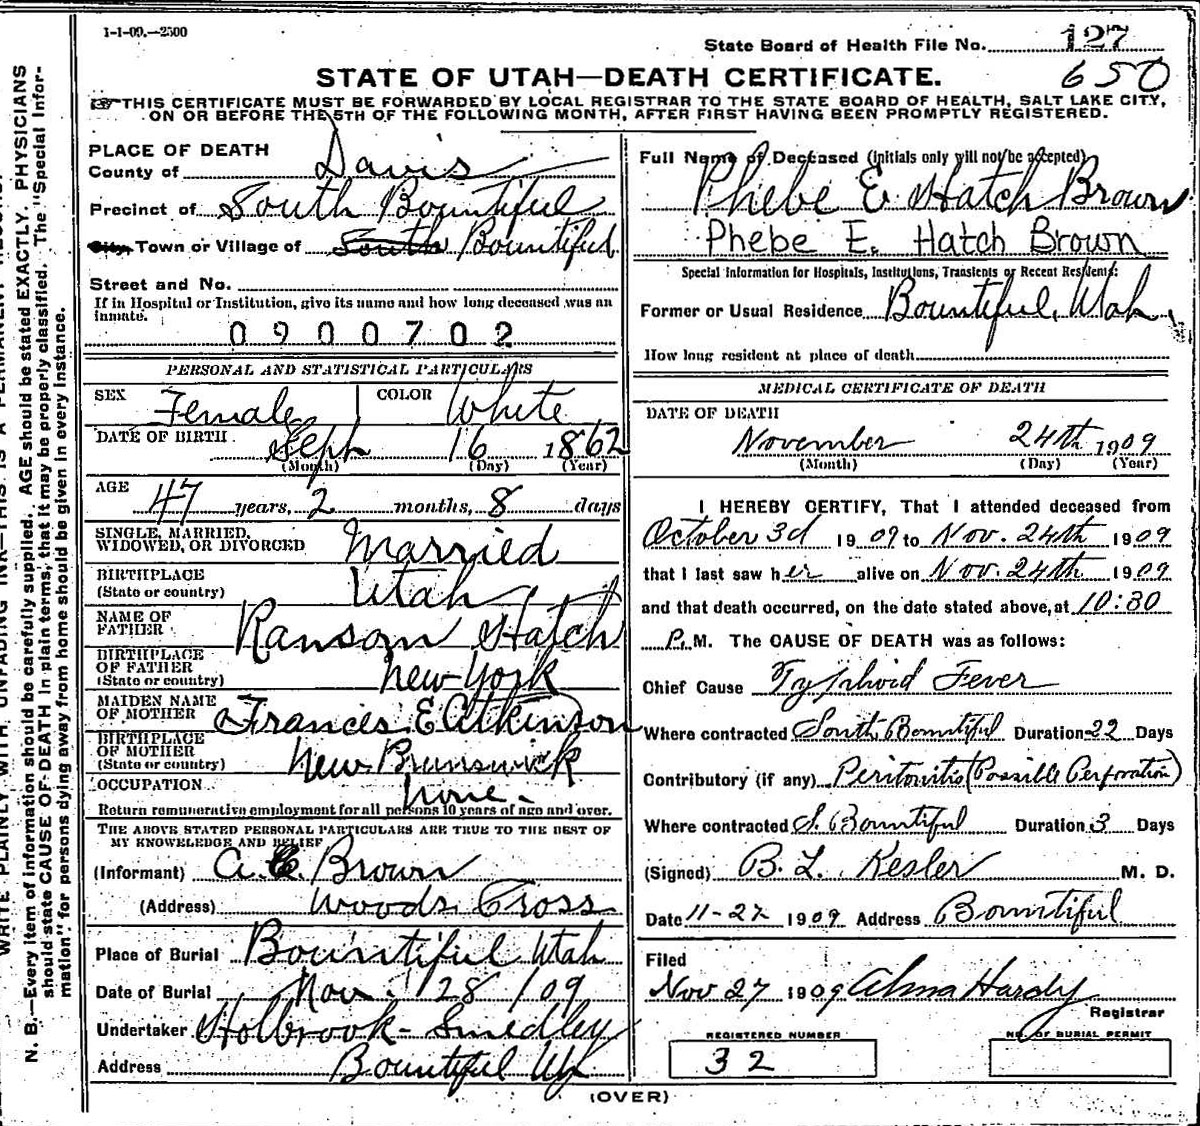 1-1-09.—2500
State Board of Health File No. 127
650
STATE OF UTAH—DEATH CERTIFICATE.
THIS CERTIFICATE MUST BE FORWARDED BY LOCAL REGISTRAR TO THE STATE BOARD OF HEALTH, SALT LAKE CITY,
ON OR BEFORE THE 5TH OF THE FOLLOWING MONTH, AFTER FIRST HAVING BEEN PROMPTLY REGISTERED.
PLACE OF DEATH
County of Davis
Precinct of South Bountiful
City, Town or Village of South Bountiful
Street and No.
If in Hospital or Institution, give its name and how long deceased was an
inmate.
0900702
PERSONAL AND STATISTICAL PARTICULARS
SEX Female COLOR White
DATE OF BIRTH Sept 16 1862
(Month) (Day) (Year)
AGE 47 years, 2 months, 8 days
SINGLE, MARRIED,
WIDOWED, OR DIVORCED Married
BIRTHPLACE
(State or country) Utah
NAME OF
FATHER Ransom Hatch
BIRTHPLACE
OF FATHER
(State or country) New York
MAIDEN NAME
OF MOTHER Frances E Atkinson
BIRTHPLACE
OF MOTHER
(State or country) New Brunswick
OCCUPATION none-
Return remunerative employment for all persons 10 years of age and over.
THE ABOVE STATED PERSONAL PARTICULARS ARE TRUE TO THE BEST OF
MY KNOWLEDGE AND BELIEF
(Informant) A. Brown
(Address) Woods Cross
Place of Burial Bountiful Utah
Date of Burial Nov. 28/09
Undertaker Holbrook-Smedley
Address Bountiful Ut
Full Name of Deceased (Initials only will not be accepted)
Phebe E Hatch Brown
Phebe E. Hatch Brown
Special Information for Hospitals, Institutions, Transients or Recent Residents:
Former or Usual Residence Bountiful, Utah.
How long resident at place of death
MEDICAL CERTIFICATE OF DEATH
DATE OF DEATH
November 24th 1909
(Month) (Day) (Year)
I HEREBY CERTIFY, That I attended deceased from
October 3d 1909 to Nov. 24th 1909
that I last saw her alive on Nov. 24th 1909
and that death occurred, on the date stated above, at 10:30
P. M. The CAUSE OF DEATH was as follows:
Chief Cause Typhoid Fever
Where contracted South Bountiful Duration 22 Days
Contributory (if any) Peritonitis (Possible Perforation)
Where contracted S. Bountiful Duration 3 Days
(Signed) B. L. Kesler M. D.
Date 11-27 1909 Address Bountiful
Filed
Nov 27 1909 Alma Hardy
Registrar
REGISTERED NUMBER
32
NO. OF BURIAL PERMIT
(OVER)
N. B.—Every item of information should be carefully supplied. AGE should be stated EXACTLY. PHYSICIANS
should state CAUSE OF DEATH in plain terms, that it may be properly classified. The "Special Infor-
mation" for persons dying away from home should be given in every instance.